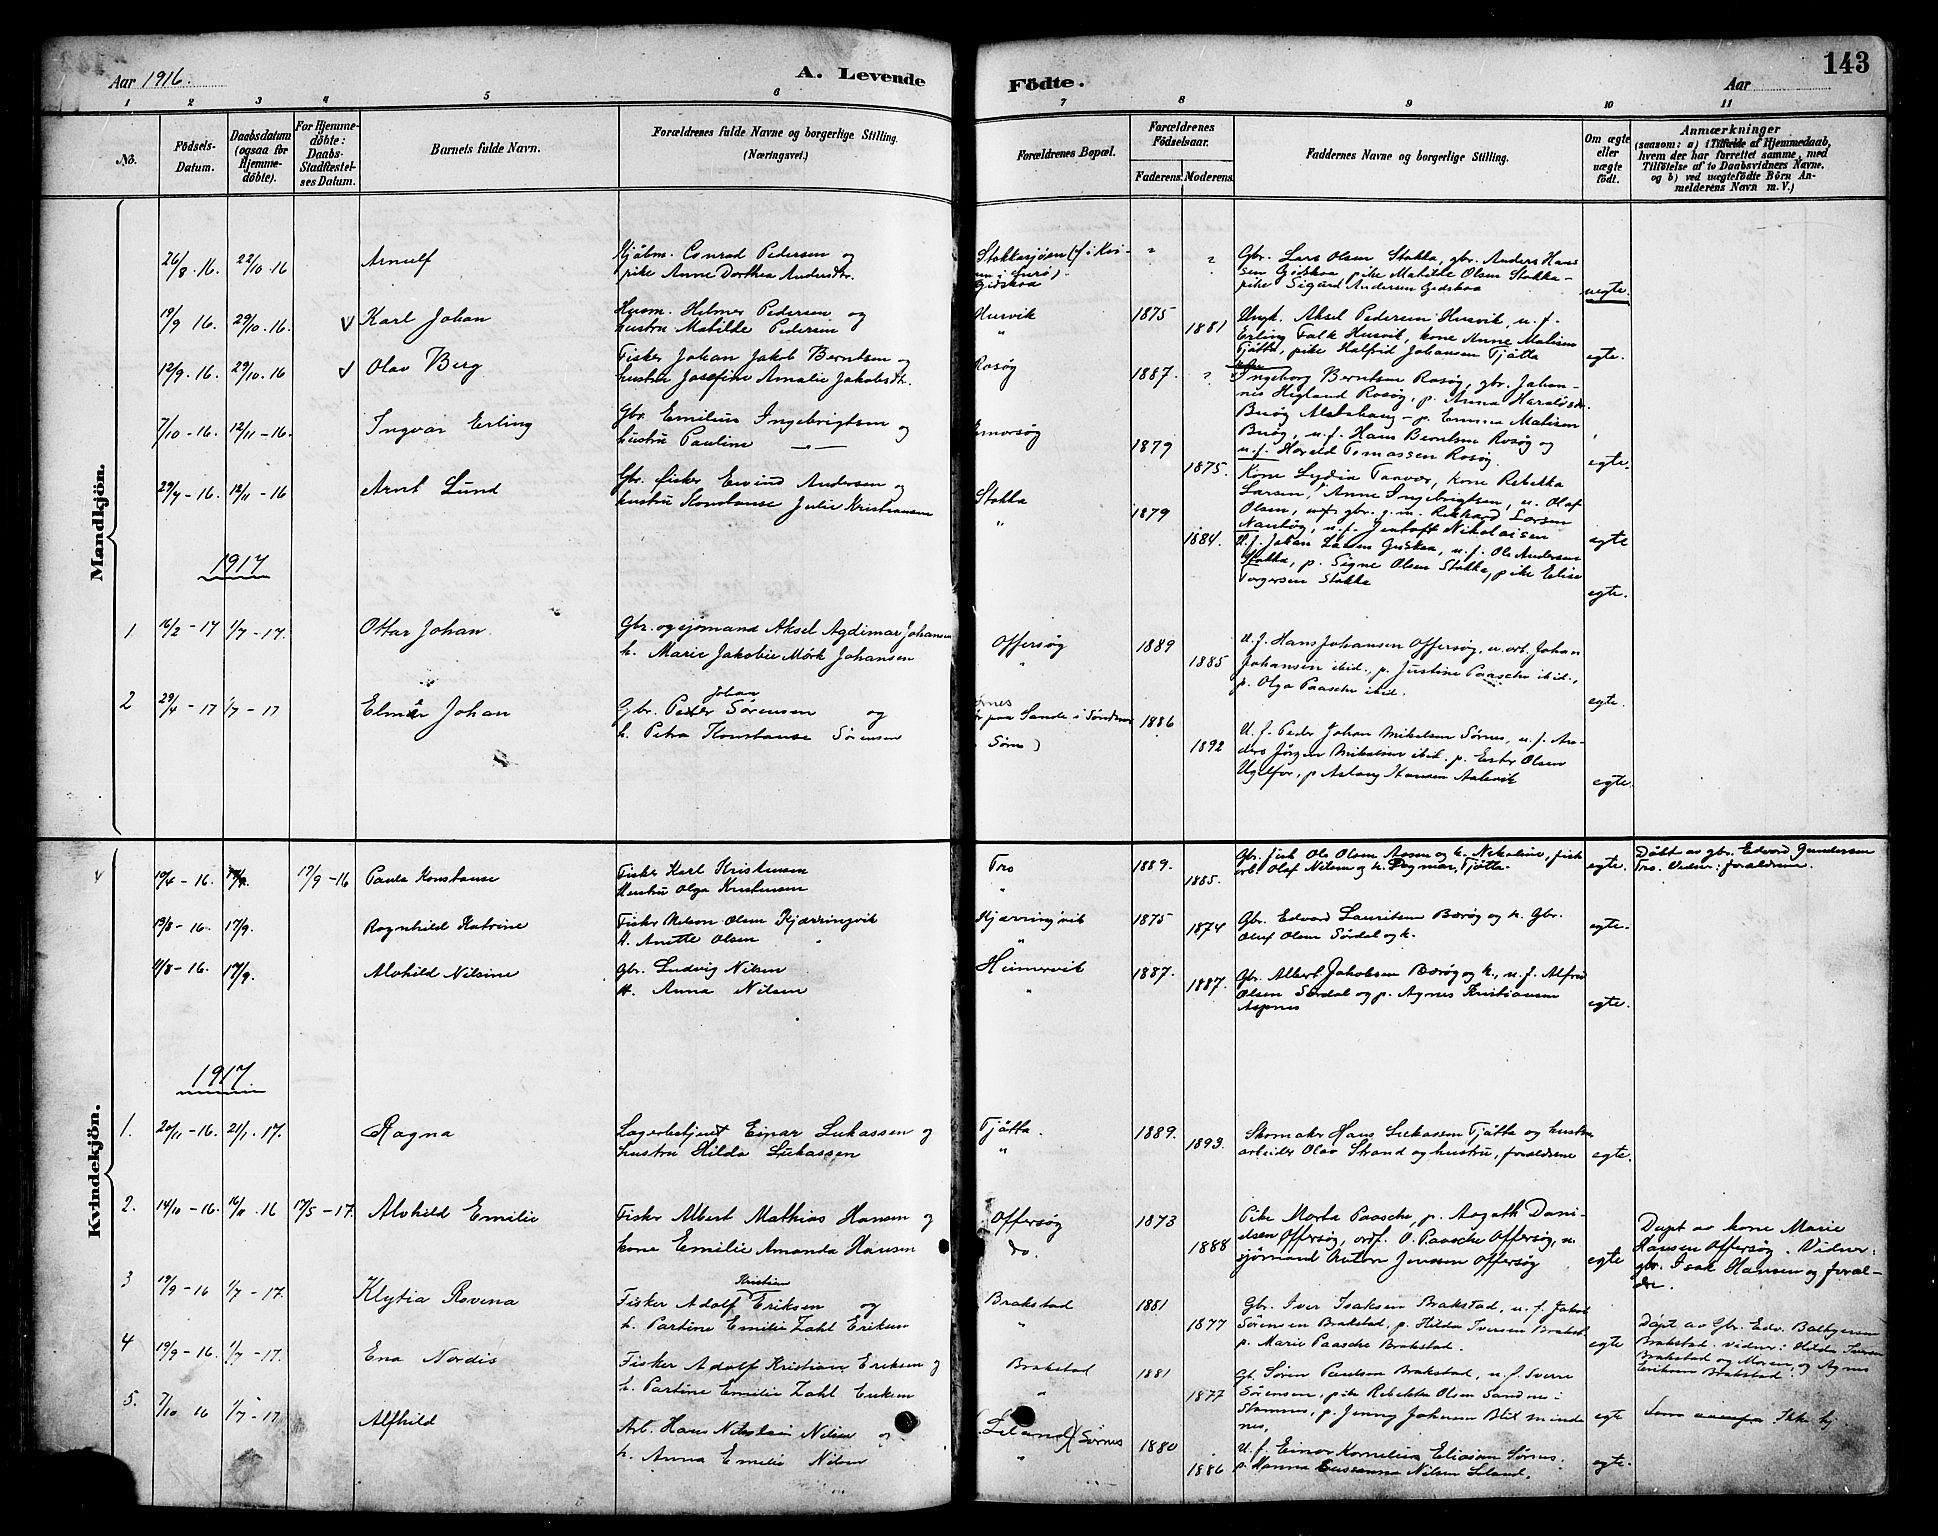 Aar 1916.
A. Levende
Födte.
Aar
143
1 2 3 4 5 6 7 8 9 10 11
No.
Födsels-
Datum.
Daabsdatum
(ogsaa for
Hjemme-
döbte).
For Hjemme-
döbte:
Daabs-
Stadfæstel-
ses Datum.
Barnets fulde Navn.
Forældrenes fulde Navne og borgerlige Stilling.
(Næringsvei.)
Forældrenes Bopæl.
Forældrenes
Födselsaar.
Faderens. Moderens.
Faddernes Navne og borgerlige Stilling.
Om ægte
eller
uægte
födt.
Anmærkninger
(saasom: a) i Tilfælde af Hjemmedaab,
hvem der har forrettet samme, med
Tilföielse af to Daabsvidners Navne.
og b) ved uægtefödte Börn An-
melderens Navn m. V.)
Mandkjön.
26/8 . 16. 22/10 . 16 Arnulf
Conrad Pedersen og
pike Anne Dorthea Andersdtr.
Gidskaa
Gbr. Lars Olsen Stokka, gbr. Anders Hans
sen Gidskaa, pike Matilde Olsen Stokka-
pike Sigurd Andersen Gidskaa
uegte.
19/9 16. 29/10 . 16. v Karl Johan
Husm. Helmer Pedersen og
hustru Matilde Pedersen
Husvik
"
1875
1881
Ungk. Aksel Pedersen Husvik, u. f.
Erling Falk Husvik, kone Anne
Tjøtta, pike Halfrid Johansen Tjøtta
egte.
12/9 . 16. 29/10 . 16 v Olav Berg
Fisker Johan Jakob Berntsen og
hustru Josefine Amalie Jakobsdtr.
Rosøg
1887. ?
Ingeborg Berntsen Rosøg, gbr. Johan-
nes Høgland Rosøg, p. Anna
u. f. Hans Berntsen Rosøg og
u. f. Harald Tomassen Rosøg.
egte.
7/10 - 16. 12/11 - 16. Ingvar Erling
Gbr. Emilius Ingebrigtsen og
hustru Pauline
1879
1875.
Kone Lydia Taavær, kone Rebekka
Larsen, Anne Ingebrigtsen, u. Olaf
Olsen, gbr. g. m. Rikhard Larsen
u. f. Jentoft Nikolaisen
egte
29/7 - 16. 12/11 - 16 Arnt Lund
Gbr. fisker Eivind Andersen og
hustru Konstanse Julie Kristiansen
Stokka
"
1879
1884.
U. f. Johan Larsen u. f. Ole Andersen
Stokka, p. Signe Olsen Stokka, pike Elise
Torgersen Stokka
egte.
1917
1 16/2 - 17 1/7 - 17. Ottar Johan
Gbr. og sjømand Aksel Agdimar Johansen
h. Marie Jakobie Mørk Johansen
Offersøg
"
1889
1885
u. f. Hans Johansen Offersøg, u. arb. Johan
Johansen ibid., p. Justine Paasche ibid.,
p. Olga Paasche ibid.
egte.
2 29/4 - 17 1/7 - 17 Elmer Johan
Johan
Gbr. Peder Sørensen og
h. Petra Konstanse Sørensen
1886
1892
U. f. Peder Johan Mikelsen Sørnes, u. f. An-
ders Jørgen Mikelsen ibid. p. Ester Olsen
p. Aslaug Hansen
egte.
Kvindekjön.
19/4 - 16. 17/9. 17/9 - 16 Paula Konstanse
Fisker Karl Kristensen
Hustru Olga Kristensen
Tro
"
1889.
1885.
Gbr. fisk. Ole Olsen Aasen og h. Nikoline, fisk
arb. Olaf Nilsen og h. Dagmar, Tjøtta
egte.
Døbt av gbr. Edvard Gundersen
Tro. Vidner: forældrene.
19/8 - 16. 17/9. Ragnhild Katrine
Fisker Nelson Olsen Kjærringvik
H. Anette Olsen
Kjærringvik
"
1875
1874
Gbr. Edvard Lauritsen Bærøg og h. Gbr.
Oluf Olsen Sørdal og h.
egte.
11/8 - 16. 17/9. Alvhild Nilsine
Gbr. Ludvig Nilsen
H. Anna Nilsen
Heimervik
"
1887.
1887.
Gbr. Albert Jakobsen Bærøg og h., u. f. Alfred
Olsen Sørdal og p. Agnes Kristiansen
Aspnes
egte.
1917
1. 20/11 - 16. 21/1 . 17. Ragna
Lagerbetjent Einar Lukassen og
hustru Hilda Lukassen
Tjøtta.
"
1889.
1893.
Skomaker Hans Lukassen Tjøtta og hustru
arbeider Olav Strand og hustru, forældrene
egte.
2. 14/10 - 16. 16/11 . 16 17/5 - 17. Alvhild Emilie
Fisker Albert Mathias Hansen og
kone Emilie Amanda Hansen
Offersøg
do.
1873
1888
Pike Marta Paasche, p. Aagath Dani-
elsen Offersøg, ordf. O. Paasche Offersøg, u.
sjømand Anton Jenssen Offersøg
egte
Døpt av kone Marie
Hansen Offersøg. Vidner:
gbr. Isak Hansen og foræl-
dre.
3 19/9 - 16 1/7 - 17. Klytia Rovena
Kristian
Fisker Adolf Eriksen og
h. Partine Emilie Zahl Eriksen
Brakstad
"
1881
1877
Gbr. Iver Isaksen Brakstad, u. f. Jakob
Sørensen Brakstad, p. Hilda Iversen Brakst.
p. Marie Paasche Brakstad.
egte
Døpt av Gbr. Edv. Balbgersen
Brakstad. Vidner: Hilda Iversen
Brakstad og Moren, og Agnes
Eriksen Brakstad.
4 19/9 - 16. 1/7 - 17. Ena Nordis
Fisker Adolf Kristian Eriksen og
h. Partine Emilie Zahl Eriksen
Brakstad
"
1881
1877
Gb. Søren Paulsen Brakstad, u. f. Sverre
Sørensen, pike Rebekka Olsen Sandnes i
Stamnes, p. Jenny Johansen
nes.
egte
5. 7/10 16 1/7 - 17 Alfhild
Arb. Hans Nikolai Nilsen og
h. Anna Emilie Nilsen
Leland Sørnes
"
1880
1886
U. f. Einar Kornelius Eliasen Sørnes.
p. Hanna Susanna Nilsen Leland.
egte.